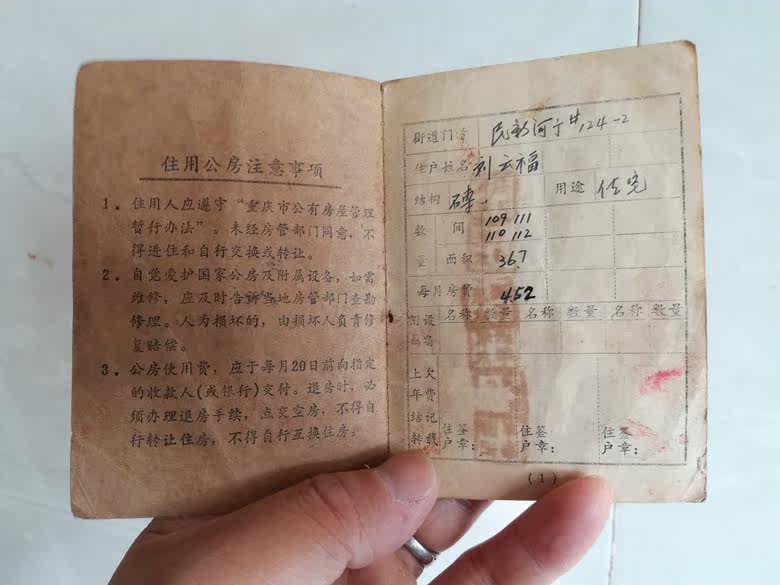 住用公房注意事项
1。住用人应遵守“重庆市公有房屋管理
暂行办法”。未经房管部门同意，不
得进住和自行交换或转让。
2。自觉爱护国家公房及附属设备，如需
维修，应及时告诉当地房管部门查勘
修理。人为损坏的，由损坏人负责修
复赔偿。
3。公房使用费，应于每月20日前向指定
的收款人(或银行)交付。退房时，必
须办理退房手续，点交空房，不得自
行转让住房，不得自行互换住房。
街道门号 124-2
住户姓名 刘云福
结构 砖 用途 住宅
数 间 109 111
110 112
面积 36.7
每月房费 4.52
附设 名称 数量 名称 数量 名称 数量
上年结转
欠费记载
住户 签章： 住户 签章： 住户 签章：
(1)